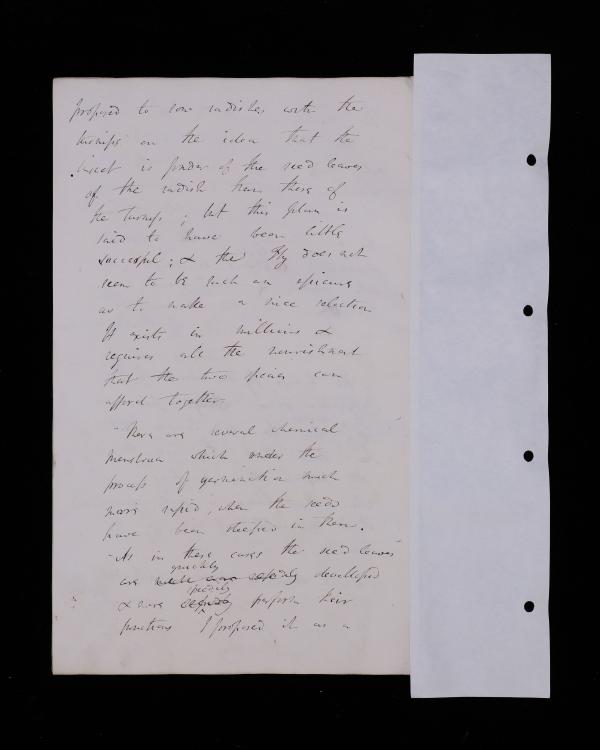 proposed to sow radishes with the
turnips on the idea that the
insect is fonder of the seed leaves
of the radish than those of
the turnip; but this plan is
said to have been little
successful; & the fly does not
seem to be such an epicure
as to make a nice selection
It exists in millions &
requires all the nourishment
that the two species can
afford together.
"There are several chemical
menstrua which render the
process of germination much
more rapid, when the seeds
have been steeped in them.
"As in these cases the seed leaves
quickly
are developed
speedily
& more perform their
functions I proposed it as a